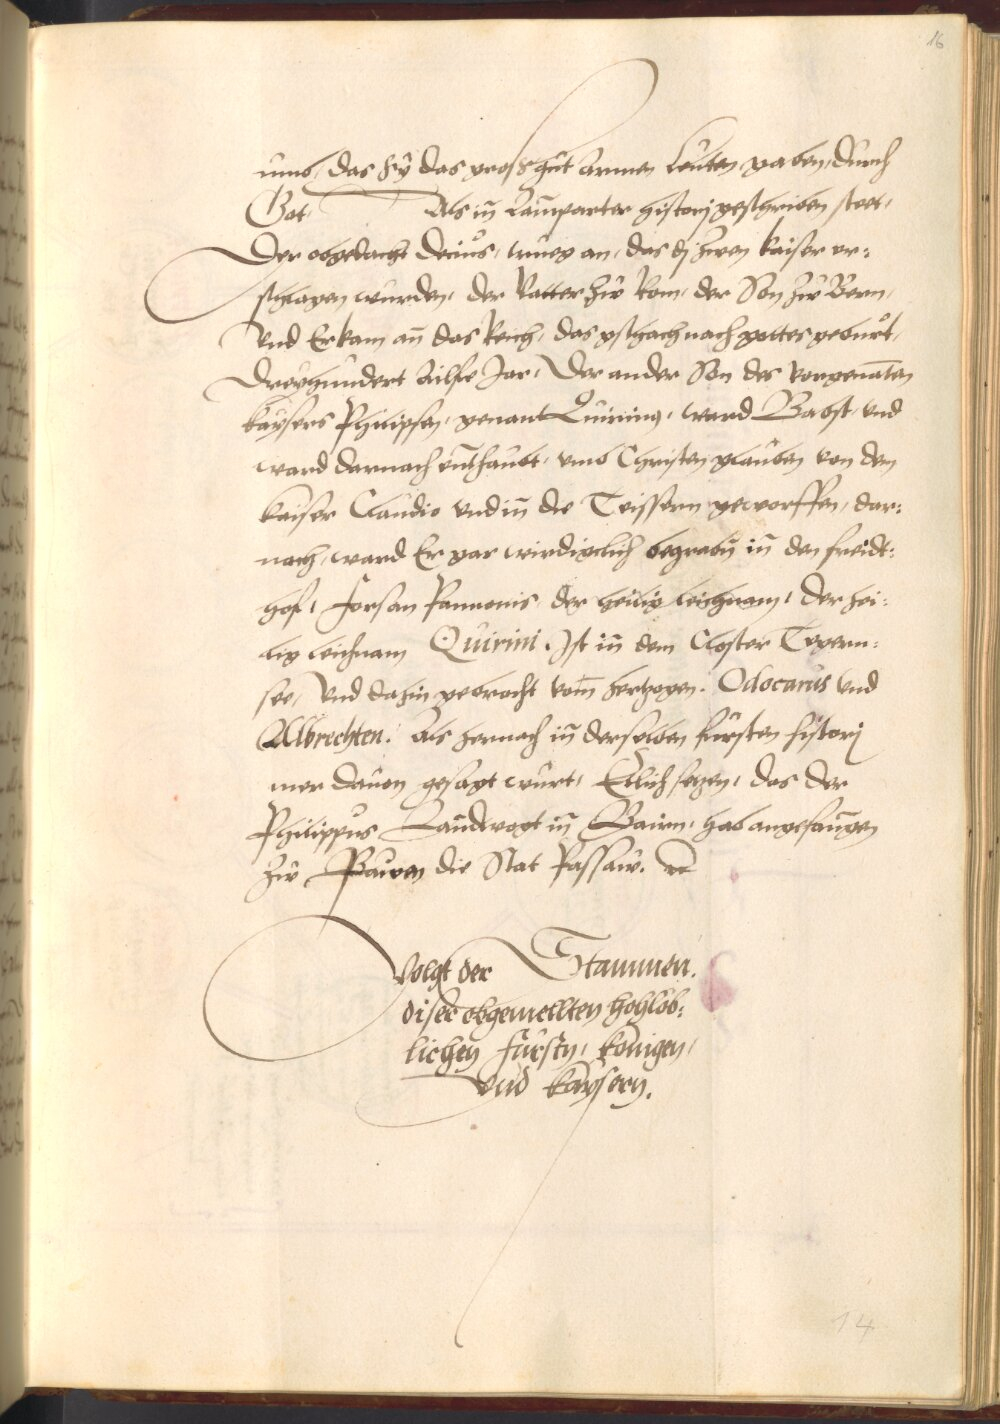 16
umb, das sÿ das gros gůt armen leuten gaben, durch
Got. Als in̄ Lamparter histori geschriben steet,
Der obgedacht Decius, trueg an, das di zwen kaiser er:
schlagen wurden, der Vatter zů Rom, der Son zů Bern,
Vnd Er kam an̄ das Reich, das gschach nach gottes geburt,
Dreÿhundert Ailfe Jar, Der ander Son des vorgenāten
kaÿsers Philipsen, genant Quirinus, ward Babst, vnd
ward darnach enthaubt, vmb Christen glauben von dem
kaiser Claudio vnd in̄ die Teissern geworffen, dar:
nach, ward Er gar wirdigclich begrabn̄ in̄ den freidt:
hof, forsan Pannonis der heilig leichnam, der hei:
lig leichnam Quirini. Ist in̄ dem Closter Tegern:
see, Vnd dahin gebracht vom̄ hertzogen. Odocarus vnd
Albrechten. Als hernach in̄ derselben fürsten histori
mer dauon gesagt wurt, Etlich setzen, das der
Philippus Landvogt in̄ Bairn, hab angefan̄gen
zů Pawen die Stat Passaw. ꝛc
Volgt der Stammen.
diser obgemellten hochlöb:
lichen fürstn, königen,
vnd kaÿsern.
14